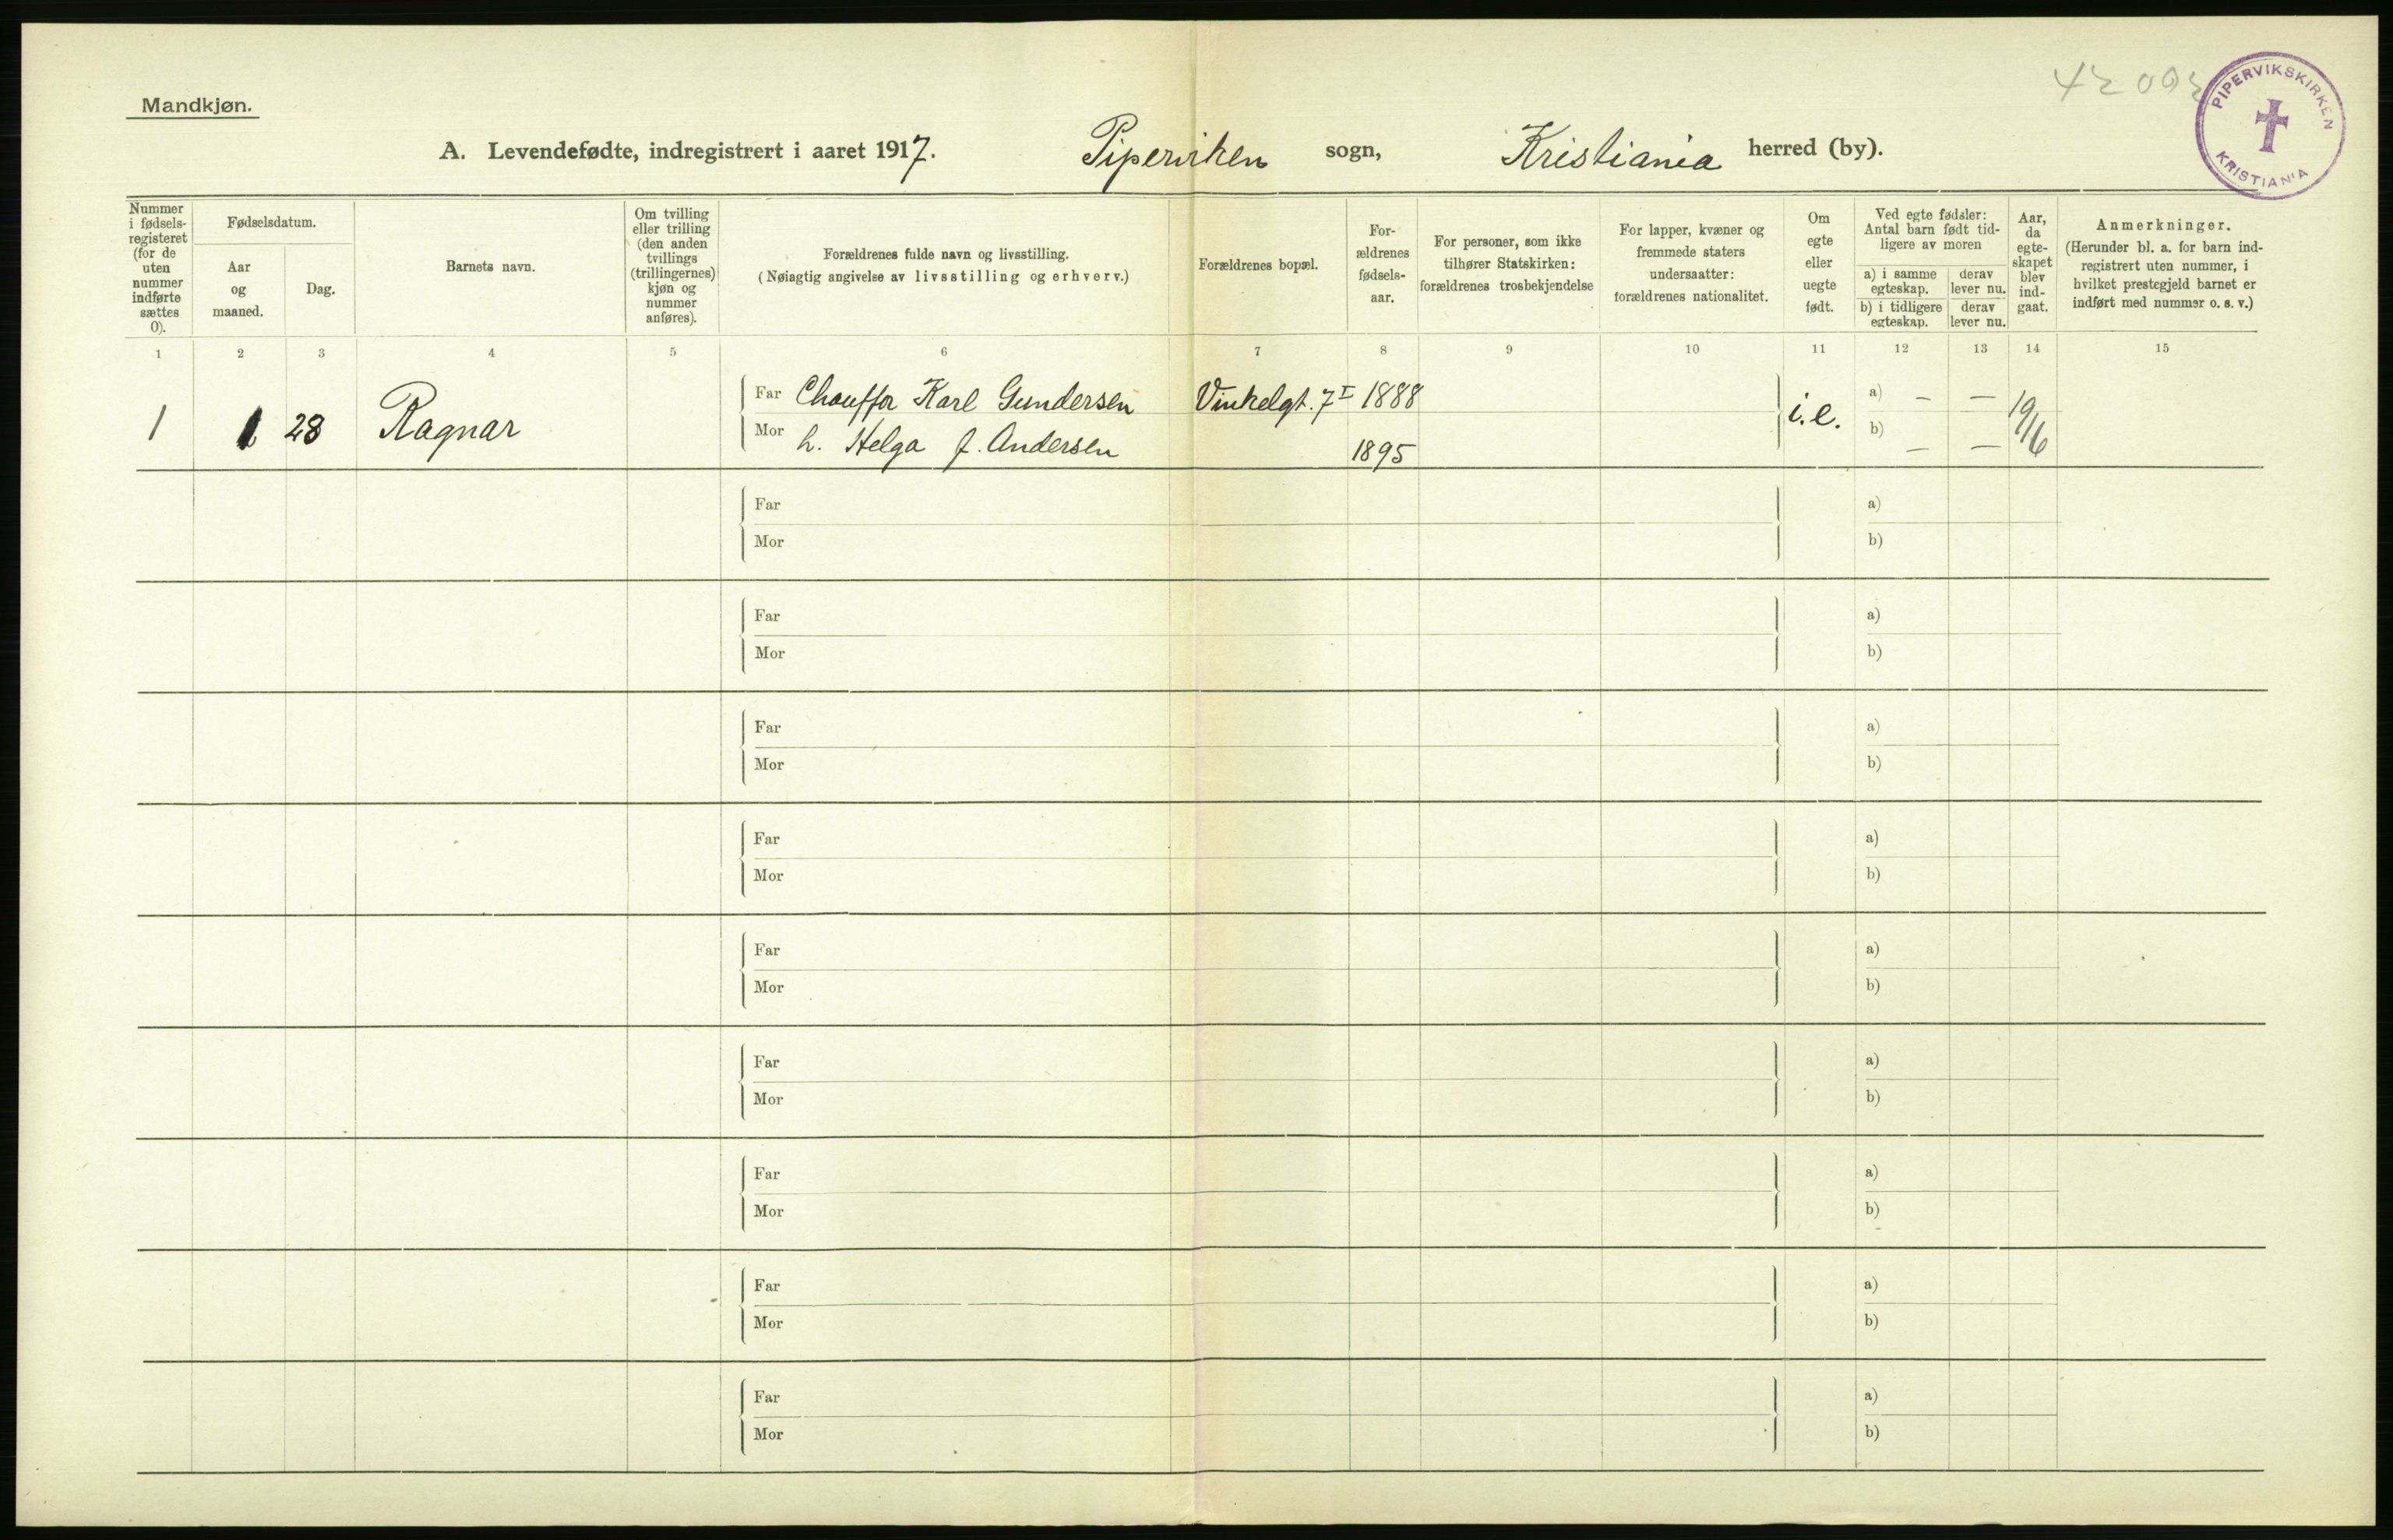 42 093
PIPERVIKSKIRKEN
KRISTIANIA
Mandkjøn.
A. Levendefødte, indregistrert i aaret 1917. Piperviken sogn, Kristiania herred (by).
Nummer i fødsels-registeret (for de uten nummer indførte sættes 0).
Fødselsdatum.
Aar og maaned.
Dag.
Barnets navn.
Om tvilling eller trilling (den anden tvillings (trillingernes) kjøn og nummer anføres).
Forældrenes fulde navn og livsstilling.
(Nøiagtig angivelse av livsstilling og erhverv.)
Forældrenes bopæl.
For-ældrenes fødsels-aar.
For personer, som ikke tilhører Statskirken: forældrenes trosbekjendelse
For lapper, kvæner og fremmede staters undersaatter: forældrenes nationalitet.
Om egte eller uegte født.
Ved egte fødsler: Antal barn født tid-ligere av moren
a) i samme egteskap.
derav lever nu.
b) i tidligere egteskap.
derav lever nu.
Aar, da egte-skapet blev ind-gaat.
Anmerkninger.
(Herunder bl. a. for barn ind-registrert uten nummer, i hvilket prestegjeld barnet er indført med nummer o. s. v.)
1 2 3 4 5 6 7 8 9 10 11 12 13 14 15
1 1 28 Ragnar Far Chauffør Karl Gundersen Vinkelgt. 7 I 1888 i.e. a) – – 19/6
Mor h. Helga f. Andersen 1895 b) – –
Far a)
Mor b)
Far a)
Mor b)
Far a)
Mor b)
Far a)
Mor b)
Far a)
Mor b)
Far a)
Mor b)
Far a)
Mor b)
Far a)
Mor b)
Far a)
Mor b)